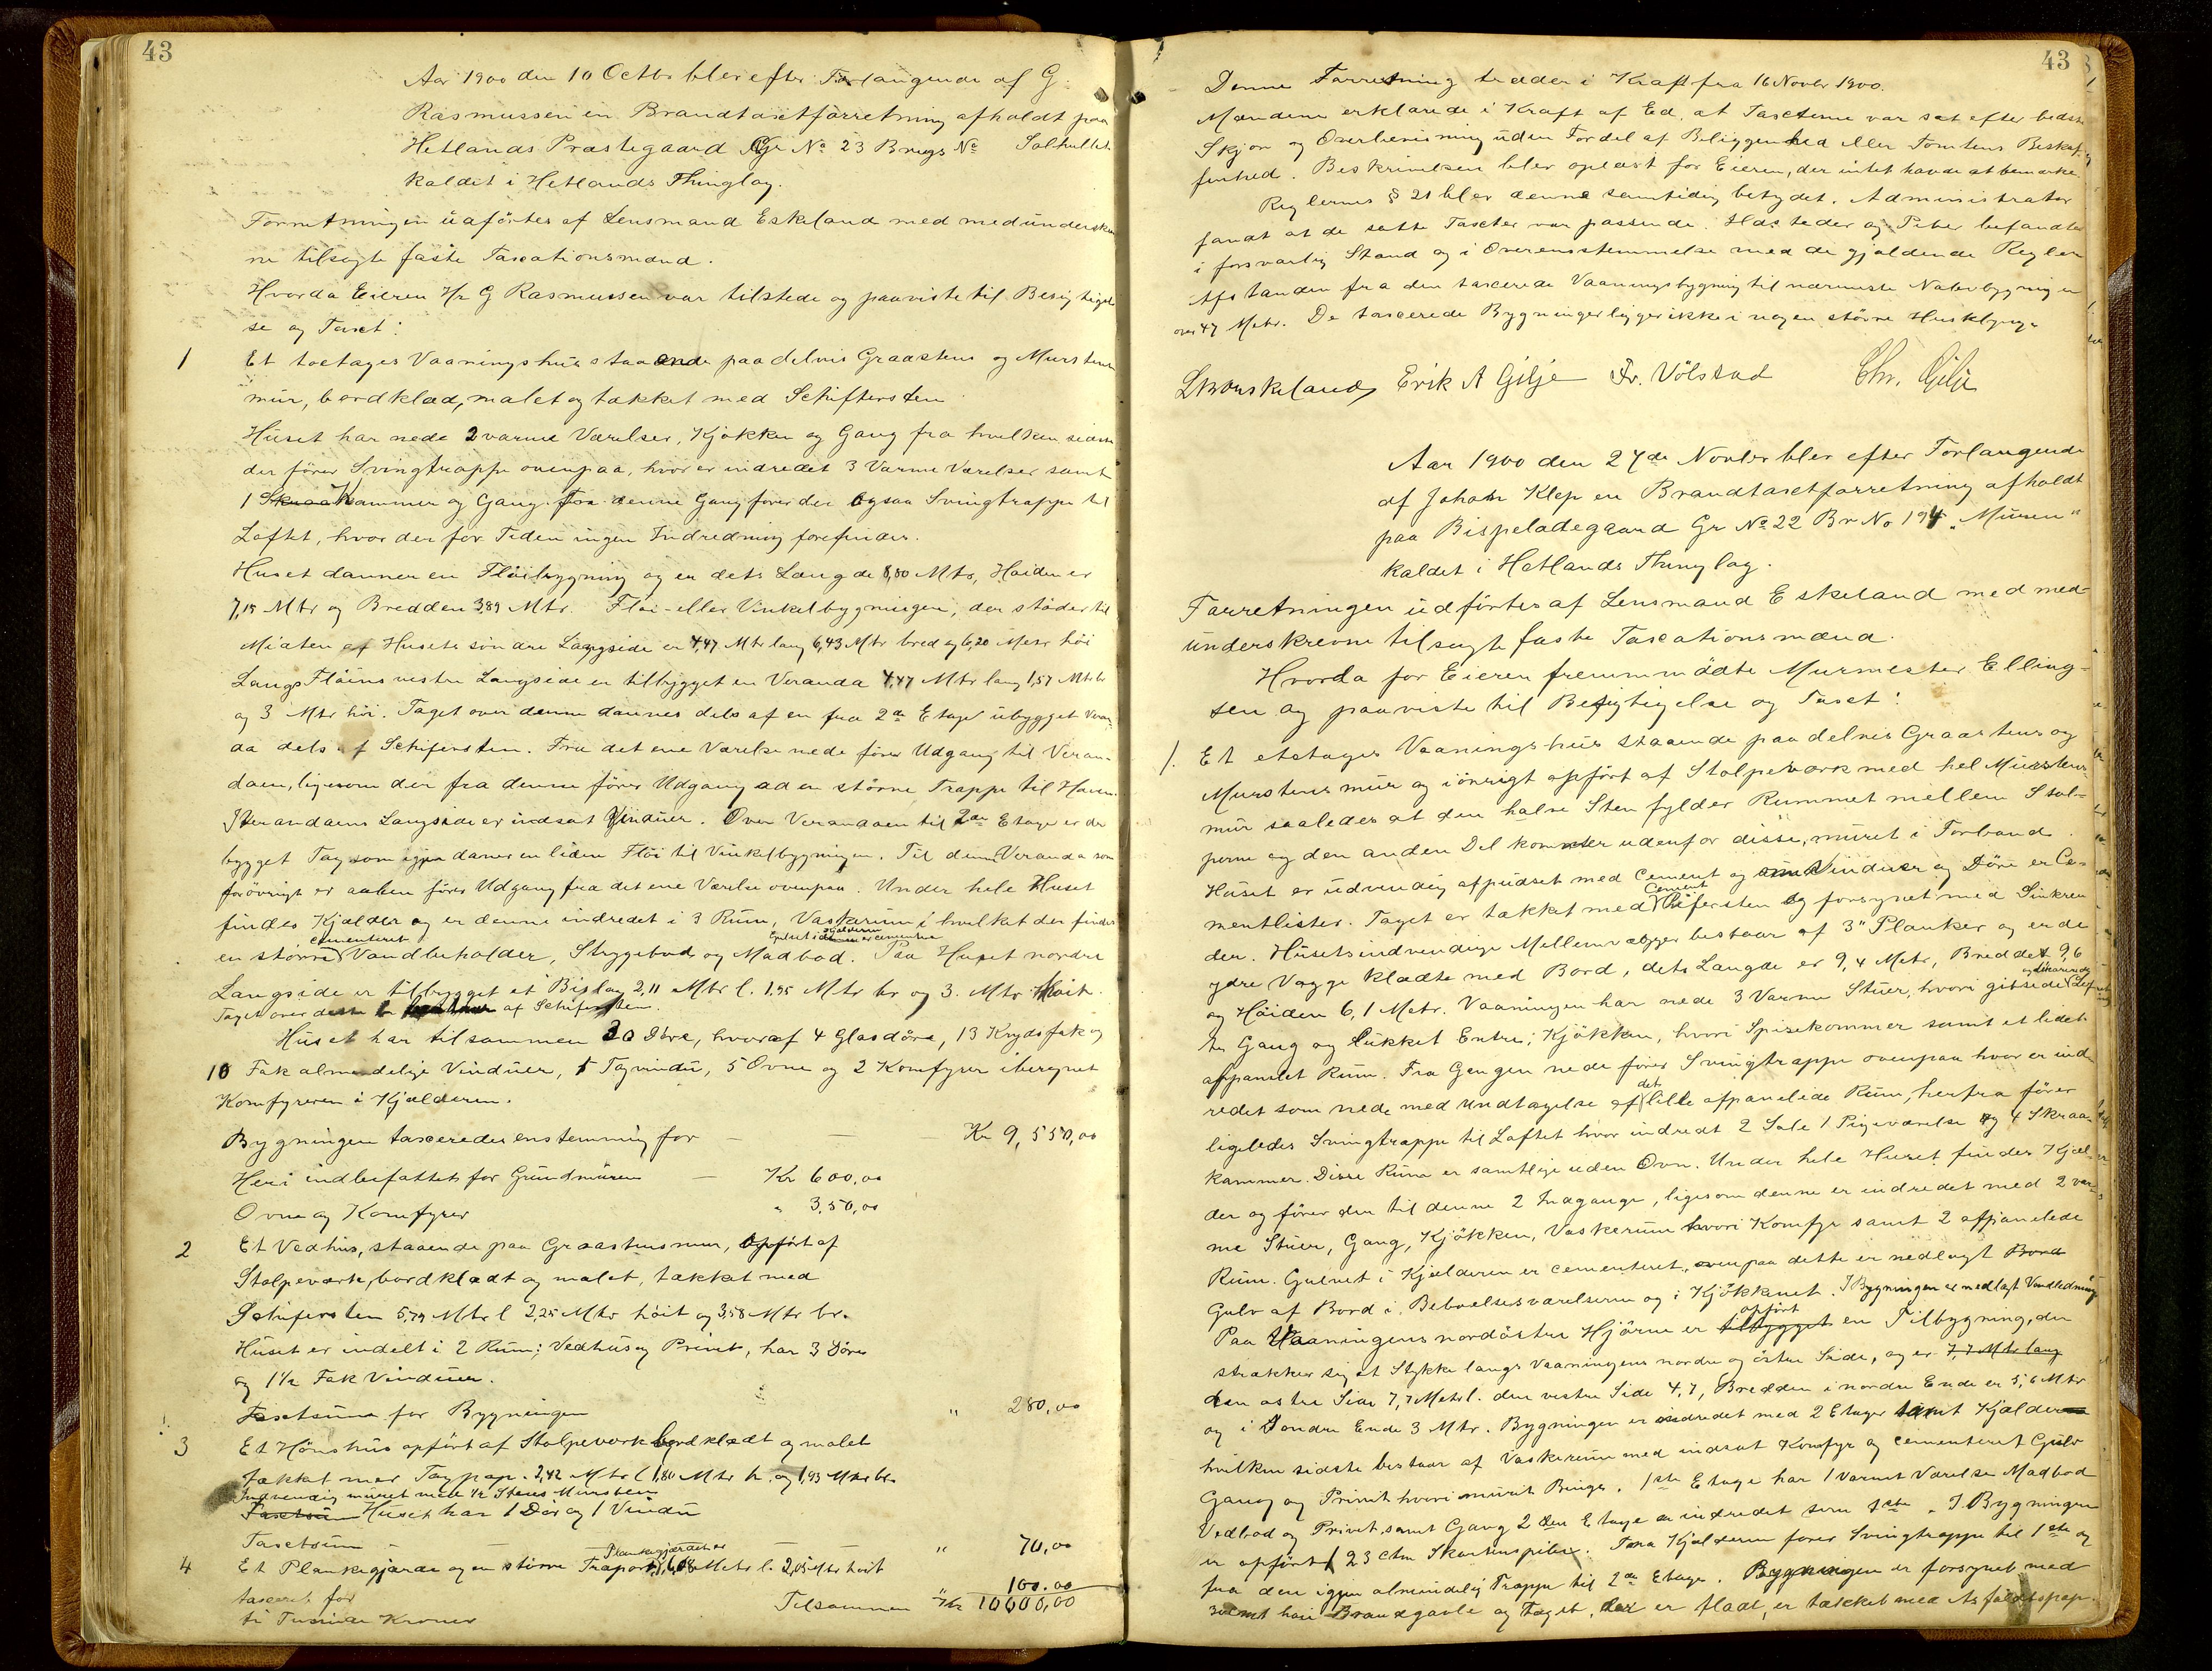 43
Aar 1900 den 10 Octbr blev efter Forlangende af G.
Rasmussen en Brandtaxtforretning afholdt paa
Hetlands Præstegaard Gr No 23 Brugs No Solhultet
kaldet i Hetlands Thinglag.
Forretningen udførtes af Lensmand Eskeland med medunderskrev
ne tilsagte faste Taxationsmænd.
Hvorda Eieren Hr G Rasmussen var tilstede og paaviste til Besigtigel
se og Taxt:
1 Et toetages Vaaningshus staaende paa delvis Graastens og Murstens
mur, bordklæd, malet og tækket med Schifersten
Huset har nede 2 varme Værelser, Kjøkken og Gang fra hvilken sidste
der fører Svingtrappe ovenpaa, hvor er indredet 3 Varme Værelser samt
1 Kammer og Gang. Fra denne Gang fører der ogsaa Svingtrappe til
Loftet, hvor der for Tiden ingen Indredning forefindes.
Huset danner en Fløibygning og er dets Længde 8,80 Mtr, Høiden er
7,15 Mtr og Bredden 3,89 Mtr. Fløi- eller Vinkelbygningen, der støder til
Midten af Husets søndre Langside er 4,47 Mtr lang 6,43 Mtr bred og 6,20 Metr høi
Langs Fløiens vestre Langside er tilbygget en Veranda 4,47 Mtr lang 1,57 Mtr br
og 3 Mtr høi. Taget over denne dannes dels af en fra 2den Etage ubygget Veran
da dels af Schifersten. Fra det ene Værelse nede fører Udgang til Veran-
daen, ligesom der fra denne fører Udgang ad en større Trappe til Haven.
I Verandaens Langside er indsat Vinduer. Over Verandaen til 2den Etage er der
bygget Tag som igjen daner en liden Fløi til Vinkelbygningen. Til denne Veranda som
forøvrigt er aaben fører Udgang fra det ene Værelse ovenpaa. Under hele Huset
findes Kjælder og er denne indredet i 3 Rum, Vaskerum i hvilket der findes
en større cementeret Vandbeholder, Strygebod og Madbod. Gulvet i Kjælderen er cementeret Paa Huset nordre
Langside er tilbygget et Bislag 2,11 Mtr l. 1,95 Mtr br og 3. Mtr høit.
Taget over dette er af Schifersten.
Huset har tilsammen 30 Døre, hvoraf 4 Glasdøre, 13 Krydsfak og
10 Fak almindelige Vinduer, 5 Tagvindu, 5 Ovne og 2 Komfyrer iberegnet
Komfyreren i Kjælderen.
Bygningen taxeredes enstemmig for — — Kr 9,550,00
Heri indbefattet for Grundmuren — Kr 600,00
Ovne og Komfyrer " 3,50,00
2 Et Vedhus, staaende paa Graastensmur, opført af
Stolpeværk, bordklædt og malet, tækket med
Schifersten 5,79 Mtr l 2,25 Mtr høit og 3,58 Mtr br.
Huset er indelt i 2 Rum; Vedhus og Privet, har 3 Døre
og 1½ Fak Vinduer.
Taxtsum for Bygningen " 280,00
3 Et Hønshus opført af Stolpeværk bordklædt og malet
tækket med Tagpap. 2,42 Mtr l 1,80 Mtr h. og 1,93 Mtr br.
Indvendig muret med ½ Stens Mursten
Taxtsum Huset har 1 Dør og 1 Vindu
Taxtsum — — — " 70,00
4 Et Plankegjærde og en større Traport, Plankegjærdet er Metr l. 2,05 Mtr høit
taxeret for " 100.00
ti Tusinde Kroner Tilsammen Kr 10000,00
43
Denne Forretning træder i Kraft fra 16 Novbr 1900.
Mændene erklærede i Kraft af Ed, at Taxterne var sat efter bedste
Skjøn og Overbevisning uden Fordel af Beliggenhed eller Tomtens Beskaf-
fenhed. Beskrivelsen blev oplæst for Eieren, der intet havde at bemærke.
Reglernes § 21 blev denne samtidig betydet. Administrator
fandt at de satte Taxter var passende. Ildsteder og Piber befandtes
i forsvarlig Stand og i Overensstemmelse med de gjældende Regler
Afstanden fra den taxerede Vaaningsbygning til nærmeste Nabobygning er
over 47 Metr. De taxerede Bygninger ligger ikke i nogen større Husklynge
Erik A Gilje Fr. Völstad Chr. Gilje
Aar 1900 den 27de Novber blev efter Forlangende
af Johan Klep en Brandtaxtforretning afholdt
paa Bispeladegaard Gr No 22 Br No 194 „Muren"
kaldet i Hetlands Thinglag.
Forretningen udførtes af Lensmand Eskeland med med-
underskrevne tilsagte faste Taxationsmænd.
Hvorda for Eieren fremmødte Murmester Elling-
sen og paaviste til Besigtigelse og Taxt:
1. Et etetages Vaaningshus staaende paa delvis Graastens og
Murstens mur og iøvrigt opført af Stolpeværk med hel Murstens-
mur saaledes at den halve Sten fylder Rummet mellem Stol-
perne og den anden Del kommer udenfor disse, muret i Forband.
Huset er udvendig afpudset med Cement og om Vinduer og Døre er Ce-
mentlister. Taget er tækket med Cement Skifersten og forsynet med Sinkren
der. Husets indvendige Mellemvægger bestaar af 3" Planker og er de
ydre Vægge klædte med Bord, dets Længde er 9,4 Metr, Bredden 9,6
og Høiden 6,1 Metr. Vaaningen har nede 3 Varme Stuer, hvori gibsede
Gang og lukket Entre; Kjøkken, hvori Spisekammer samt et lidet
afpanelet Rum. Fra Gangen nede fører Svingtrappe ovenpaa hvor er ind
redet som nede med Undtagelse af det lille afpanelede Rum, herfra fører
ligeledes Svingtrappe til Loftet hvor indredt 2 Sale 1 Pigeværelse og 4 Skraa-
kammer. Disse Rum er samtlige uden Ovn. Under hele Huset findes Kjæl-
der og fører der til denne 2 Indgange, ligesom denne er indredet med 2 var-
me Stuer, Gang, Kjøkken, Vaskerum hvori Komfyr samt 2 afpanelede
Rum. Gulvet i Kjælderen er cementeret, ovenpaa dette er nedlagt Bord
Gulv af Bord i Beboelsesværelserne og i Kjøkkenet. I Bygningen er nedlagt Vandledning
Paa Vaaningens nordøstre Hjørne er tilbygget opført en Tilbygning, der
strækker sig et Stykke langs Vaaningens nordre og østre Side, og er 7,7 Mtr lang
den østre Side 7,7 Metr l. den vestre Side 4,7, Bredden i nordre Ende er 5,6 Mtr
og i søndre Ende 3 Mtr. Bygningen er indredet med 2 Etager samt Kjælder
hvilken sidste bestaar af Vaskerum med indsat Komfyr og cementeret Gulv
Gang og Privet hvori muret Binge. 1ste Etage har 1 varmt Værelse Madbod
Vedbod og Privet samt Gang 2den Etage er indredet som 1ste. I Bygningen
er opført 1 23 Ctm Skorstenspibe. Fra Kjælderen fører Svingtrappe til 1ste og
fra den igjen almindelig Trappe til 2de Etage. Bygningen er forsynet med
Brandgavle og Taget, der er fladt, er tækket med Asfaldtpap.